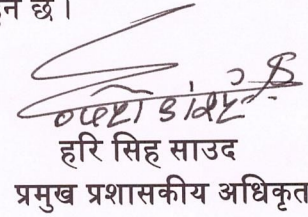 न छ ।
हरि सिह साउद
प्रमुख प्रशासकीय अधिकृत